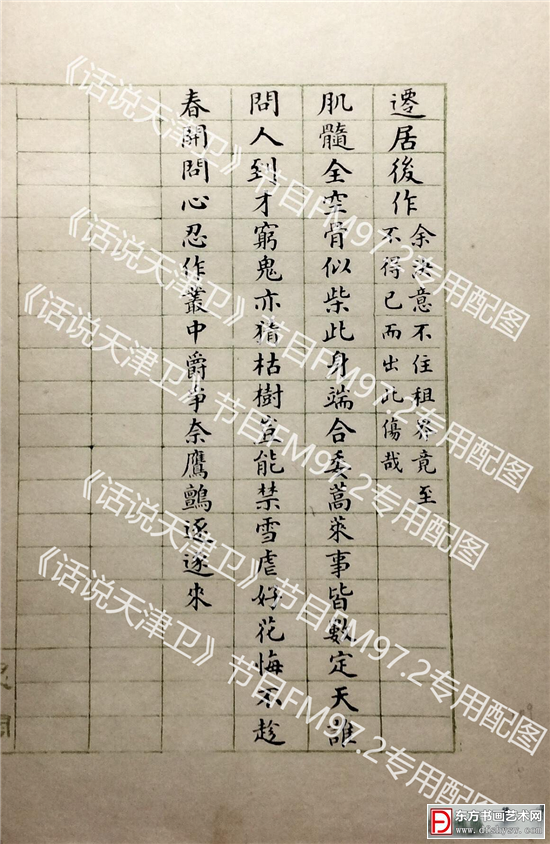 遷居後作
余決意不住租界竟至
不得已而出此傷哉
肌髓全空骨似柴此身端合委蒿萊事皆數定天誰
問人到才窮鬼亦猜枯樹豈能禁雪虐好花悔不趁
春開問心忍作叢中爵爭奈鷹鸇逐逐來
《话说天津卫》节目FM97.2专用配图
《话说天津卫》节目FM97.2专用配图
《话说天津卫》节目FM97.2专用配图
《话说天津卫》节目FM97.2专用配图
《话说天津卫》节目FM97.2专用配图
东方书画艺术网
www.dfshysw.com